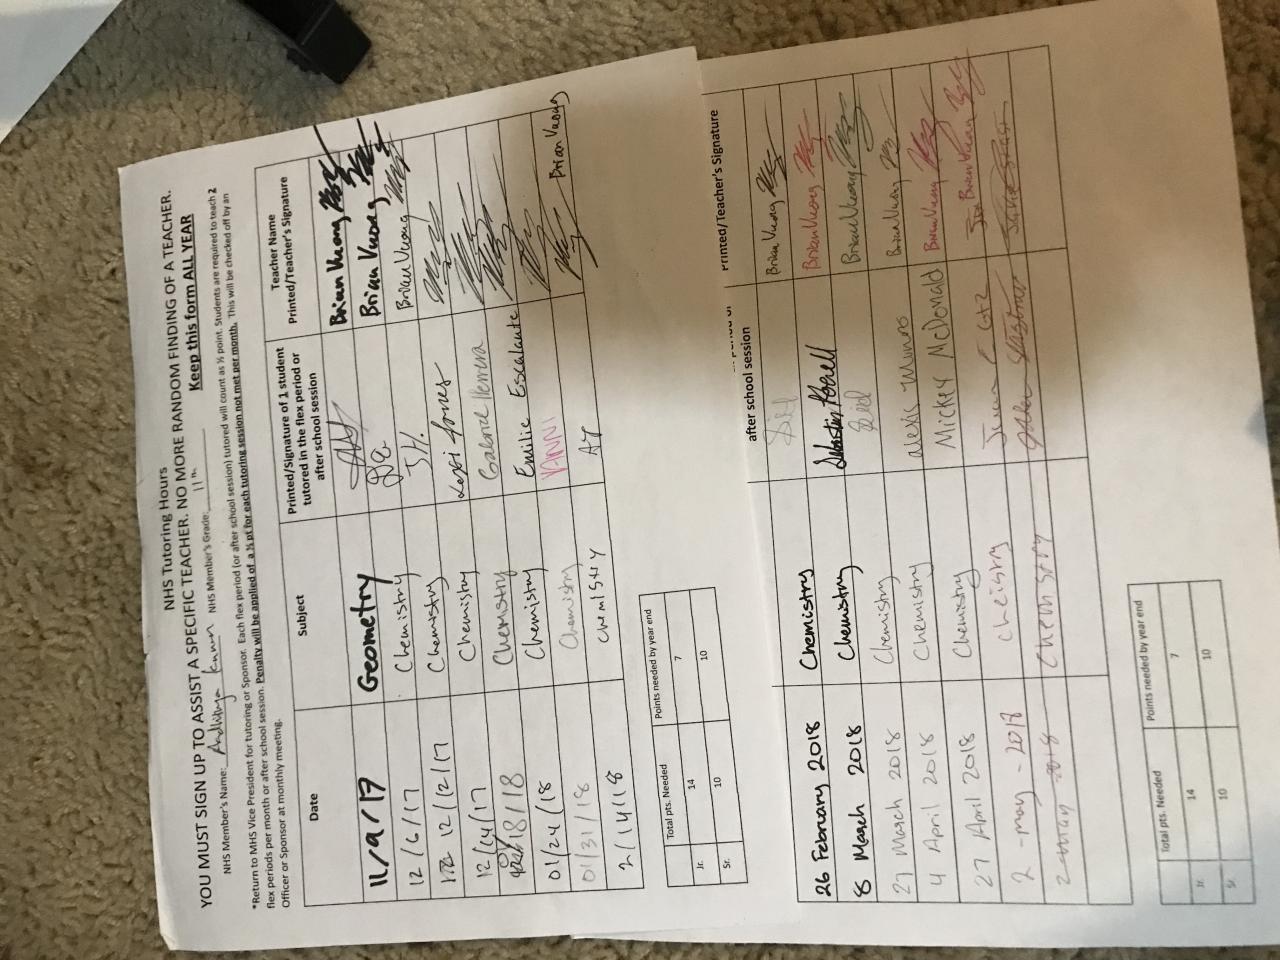 NHS Tutoring Hours
YOU MUST SIGN UP TO ASSIST A SPECIFIC TEACHER. NO MORE RANDOM FINDING OF A TEACHER.
Keep this form ALL YEAR
NHS Member's Name: NHS Member's Grade: 11th
*Return to MHS Vice President for tutoring or Sponsor. Each flex period (or after school session) tutored will count as ½ point. Students are required to teach 2
flex periods per month or after school session. Penalty will be applied of a ½ pt for each tutoring session not met per month. This will be checked off by an
Officer or Sponsor at monthly meeting.
Date Subject Printed/Signature of 1 student tutored in the flex period or after school session Teacher Name Printed/Teacher's Signature
11/9/17 Geometry Brian Vuong
12/6/17 Chemistry Brian Vuong
12/12/17 Chemistry J.H. Brian Vuong
12/14/17 Chemistry Lexi Jones
18/18 Chemistry Gabriel Herrera
01/24/18 Chemistry Emilie Escalante
01/31/18 Chemistry YANNI
2/14/18 Chemistry AJ Brian Vuong
Total pts. Needed Points needed by year end
Jr. 14 7
Sr. 10 10
after school session Printed/Teacher's Signature
26 February 2018 Chemistry Brian Vuong
8 March 2018 Chemistry Brian Vuong
27 March 2018 Chemistry Brian Vuong
4 April 2018 Chemistry Alexis Munos Brian Vuong
27 April 2018 Chemistry Mickey McDonald Brian Vuong
2-may-2018 Cheistry Brian Vuong
2-may 2018 Chemistry
Total pts. Needed Points needed by year end
Jr. 14 7
Sr. 10 10